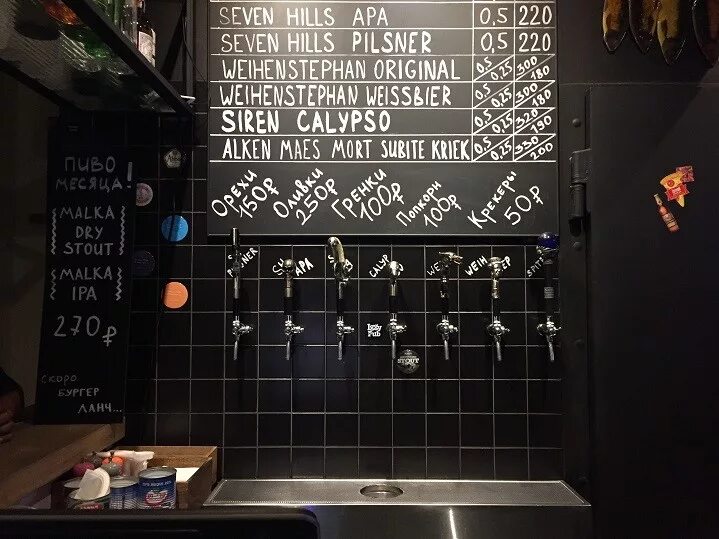 SEVEN HILLS APA 0,5 220
SEVEN HILLS PILSNER 0,5 220
WEIHENSTEPHAN ORIGINAL 0,5 0,25 300 180
WEIHENSTEPHAN WEISSBIER 0,5 0,25 300 180
SIREN CALYPSO 0,5 0,25 320 190
ALKEN MAES MORT SUBITE KRIEK 0,5 0,25 330 200
Орехи 150₽
Оливки 250₽
Гренки 100₽
Попкорн 100₽
Крекеры 50₽
ПИВО
МЕСЯЦА!
MALKA
DRY
STOUT
MALKA
IPA
270₽
СКОРО
БУРГЕР
ЛАНЧ...
PILSNER
APA
CALYP
Pub
STOUT